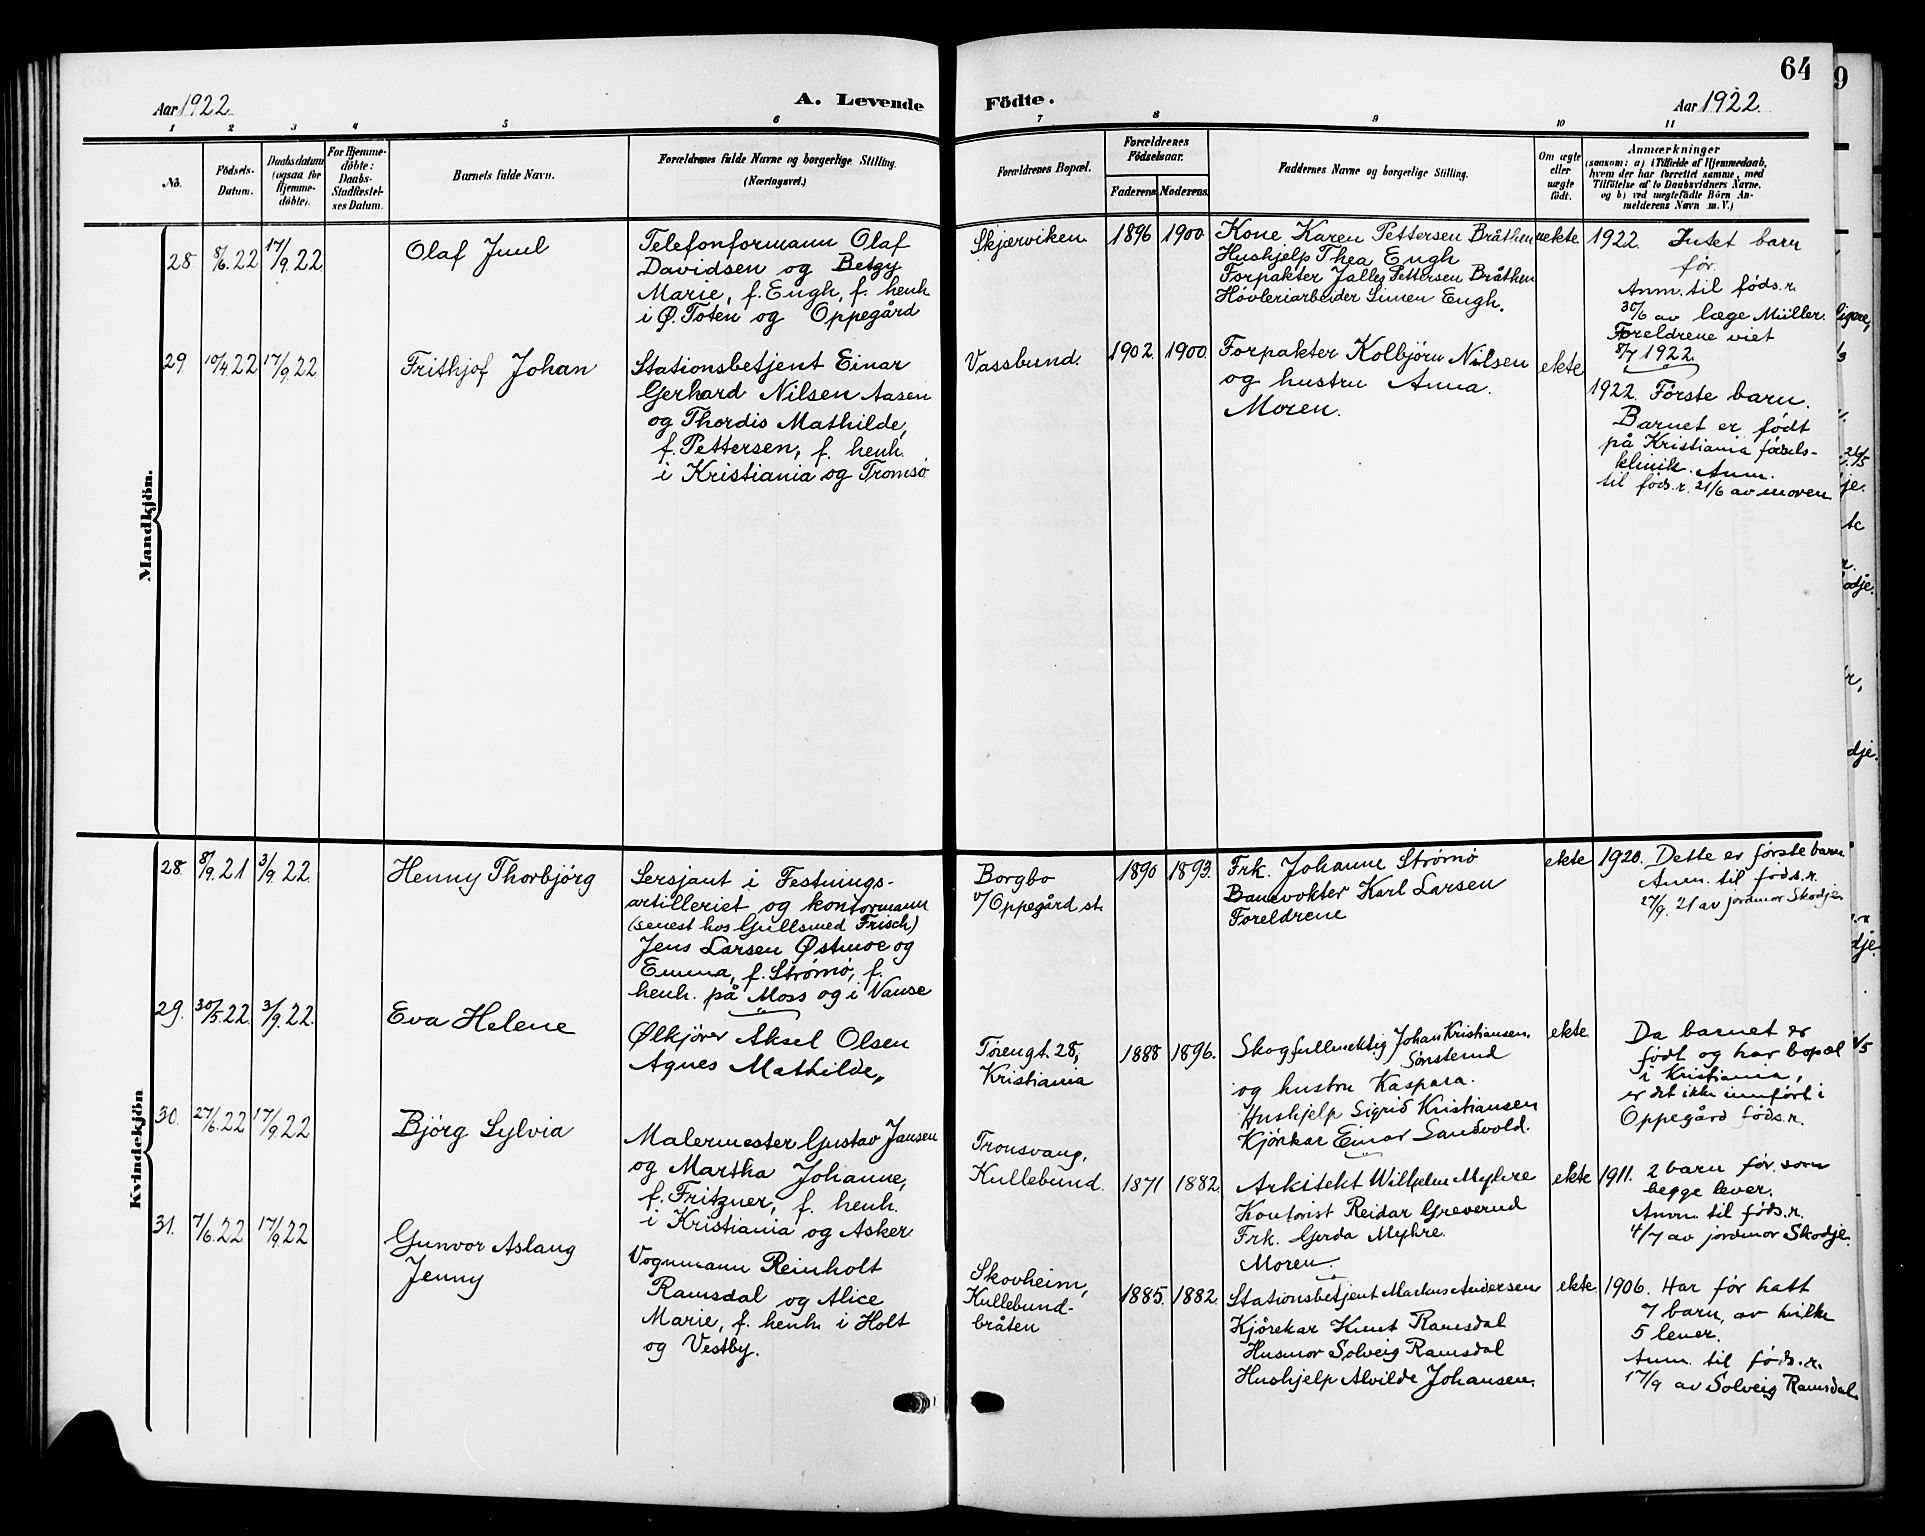 64
Aar 1922
A. Levende
Födte.
Aar 1922
1 2 3 4 5 6 7 8 9 10 11
No.
Födsels-
Datum.
Daabsdatum
(ogsaa for
Hjemme-
döbte).
For Hjemme-
döbte:
Daabs-
Stadfæstel-
ses Datum.
Barnets fulde Navn.
Forældrenes fulde Navne og borgerlige Stilling.
(Næringsvei.)
Forældrenes Bopæl.
Forældrenes
Födselsaar.
Faderens Moderens.
Faddernes Navne og borgerlige Stilling.
Om ægte
eller
uægte
födt.
Anmærkninger
(saasom: a) i Tilfælde af Hjemmedaab,
hvem der har forrettet samme, med
Tilföielse af to Daabsvidners Navne,
og b) ved uægtefödte Börn An-
melderens Navn m. V.)
Mandkjön.
28 8/6.22 17/9.22
Olaf Juul
Telefonformann Olaf
Davidsen og Betzy
Marie, f. Engh, f. henh.
i Ø. Toten og Oppegård
Skjærviken
1896 1900
Kone Karen Pettersen Bråthen
Hushjelp Thea Engh
Forpakter Jalles Pettersen Bråthen
Høvleriarbeider Simen Engh.
uekte
1922. Intet barn
før.
Anm. til føds.r.
30/6 av læge Müller.
Foreldrene viet
8/7 1922
29. 10/4 22 17/9.22
Frithjof Johan
Stationsbetjent Einar
Gerhard Nilsen Aasen
og Thordis Mathilde,
f. Pettersen, f. henh.
i Kristiania og Tromsø
Vassbund.
1902. 1900
Forpakter Kolbjörn Nilsen
og hustru Anna.
Moren.
ekte
1922. Første barn.
Barnet er født
på Kristiania fødsels-
klinik. Anm.
til føds.r. 21/6 av moren
Kvindekjön
28. 8/9.21 3/9.22.
Henny Thorbjörg
Sersjant i Festnings-
artilleriet og kontormann
(senest hos Gullsmed Frisch)
Jens Larsen Østmoe og
Emma, f. Strømø, f.
henh. på Moss og i Vanse
Borgbo
v/Oppegård st.
1890 1893.
Frk. Johanne Strømø
Banevokter Karl Larsen
Foreldrene
ekte
1920. Dette er første barn
Anm. til føds.r.
27/9. 21 av jordmor Skodje
29. 30/5.22 3/9.22.
Eva Helene
Ølkjörer Aksel Olsen
Agnes Mathilde,
Tøiengt. 28,
Kristiania
1888 1896.
Skogfullmektig Johan Kristiansen.
Sønsterud
og hustru Kaspara.
Hushjelp Sigrid Kristiansen
Kjörekar Einar Sandvold.
ekte
Da barnet er
født og har bopæl
i Kristiania,
er det ikke innført i
Oppegård føds.r.
30. 27/6.22 17/9.22
Bjørg Sylvia
Malermester Gustav Jansen
og Martha Johanne,
f. Fritzner, f. henh.
i Kristiania og Asker
Tronsvang,
Kullebund.
1871 1882.
Arkitekt Wilhelm Myhre
Kontorist Reidar Greverud
Frk. Gerda Myhre.
Moren.
ekte
1911. 2 barn før, som
begge lever.
Anm. til føds.r.
4/7 av jordmor Skodje
31. 7/6.22 17/9.22
Gunvor Aslaug
Jenny
Vognmann Reinholt
Ramsdal og Alice
Marie, f. henh. i Holt
og Vestby.
Skovheim,
Kullebund-
bråten
1885. 1882.
Stationsbetjent Markus Andersen
Kjörekar Knut Ramsdal
Husmor Solveig Ramsdal
Hushjelp Alvilde Johansen.
ekte
1906. Har før hatt
7 barn, av hvilke
5 lever.
Anm. til føds.r.
17/9 av Solveig Ramsdal